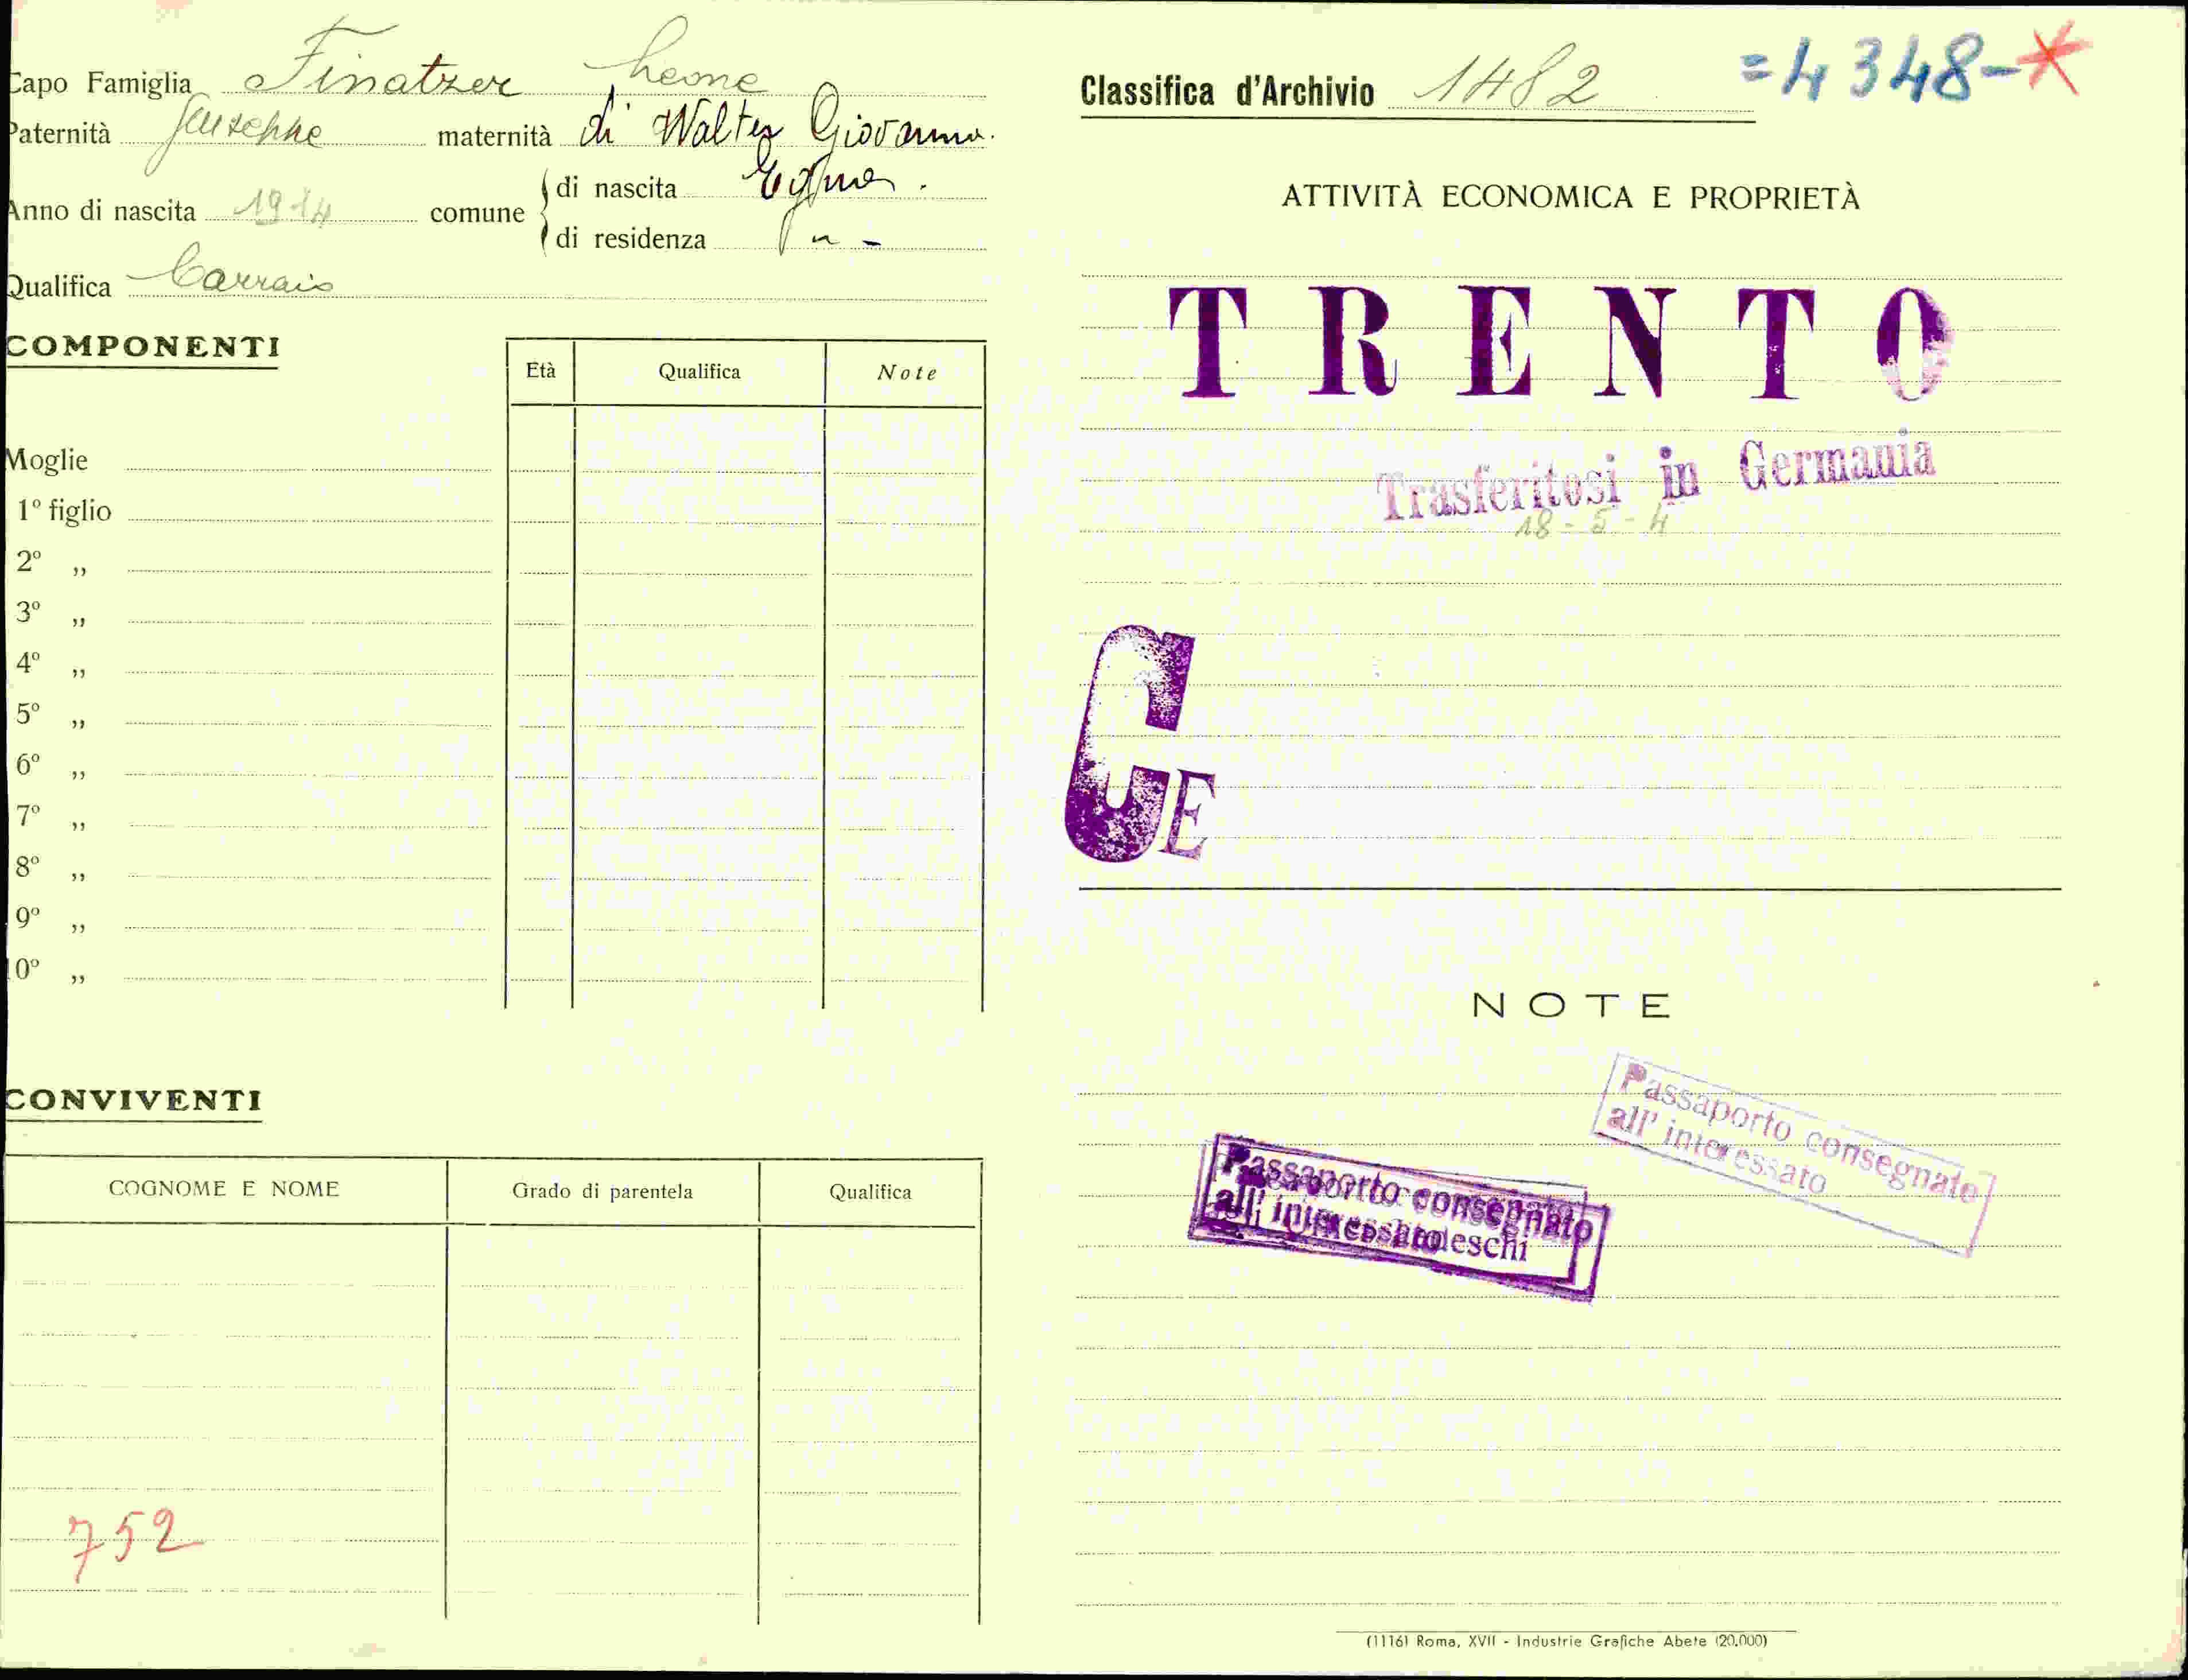 Capo Famiglia Finatzer Leone
Paternità Giuseppe maternità di Walter Giovanna.
Anno di nascita 1914 comune di nascita Egna.
di residenza " -
Qualifica Carraio
COMPONENTI
Età Qualifica Note
Moglie
1º figlio
2º „
3º „
4º „
5º „
6º „
7º „
8º „
9º „
10º „
CONVIVENTI
COGNOME E NOME Grado di parentela Qualifica
752
Classifica d'Archivio 1482 =4348-*
ATTIVITÀ ECONOMICA E PROPRIETÀ
TRENTO
Trasferitosi in Germania
18-5-4
CE
NOTE
Passaporto consegnato
all' interessato
Passaporto consegnato
all' interessato
(1116) Roma, XVII - Industrie Grafiche Abete (20.000)